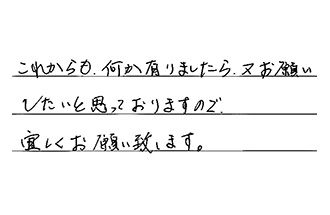 これからも、何か有りましたら、又お願い
したいと思っておりますので、
宜しくお願い致します。